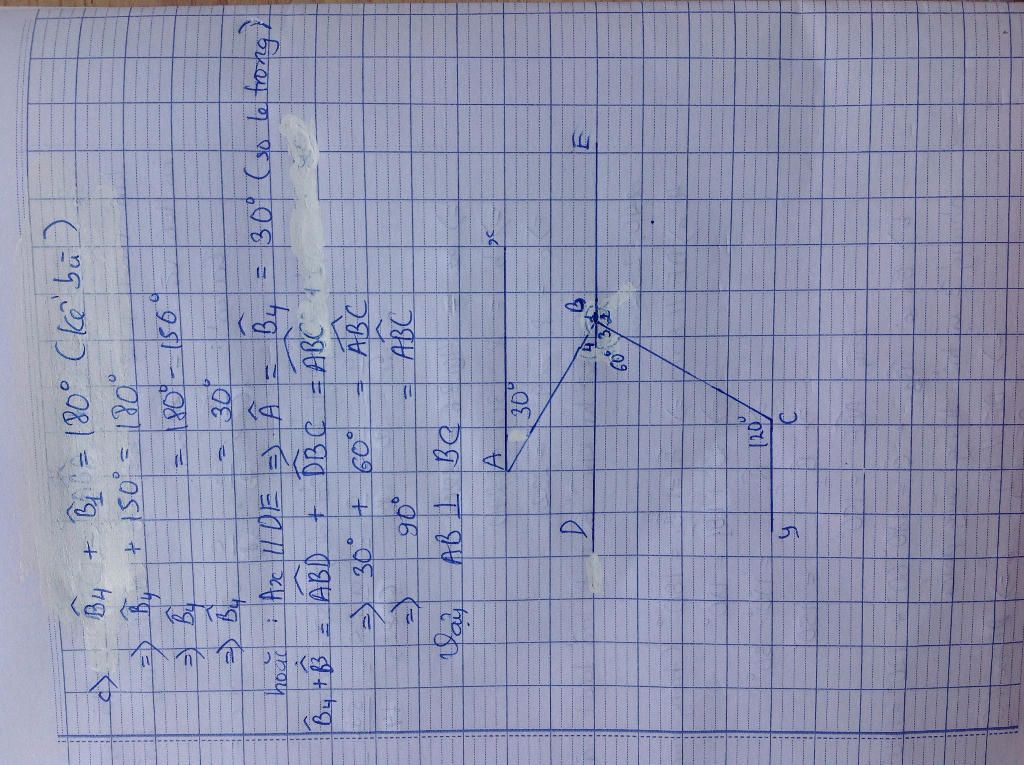 c) B̂4 + B̂1 = 180° (kề bù)
=) B̂4 + 150° = 180°
=) B̂4 = 180° - 150°
=) B̂4 = 30°
hoặc : Ax // DE =) Â = B̂4 = 30° (so le trong)
B̂4 + B̂3 = ABD̂ + DBĈ = ABĈ
=) 30° + 60° = ABĈ
=) 90° = ABĈ
Vậy AB ⊥ BC
A 30° x
D B E
4 1
3 2
60°
120°
y C